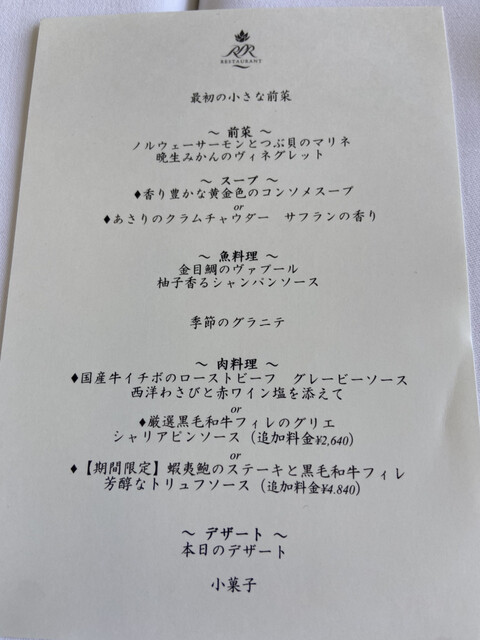 RR
RESTAURANT
最初の小さな前菜
～ 前菜 ～
ノルウェーサーモンとつぶ貝のマリネ
晩生みかんのヴィネグレット
～ スープ ～
♦香り豊かな黄金色のコンソメスープ
or
♦あさりのクラムチャウダー　サフランの香り
～ 魚料理 ～
金目鯛のヴァプール
柚子香るシャンパンソース
季節のグラニテ
～ 肉料理 ～
♦国産牛イチボのローストビーフ　グレービーソース
西洋わさびと赤ワイン塩を添えて
or
♦厳選黒毛和牛フィレのグリエ
シャリアピンソース（追加料金¥2,640）
or
♦【期間限定】蝦夷鮑のステーキと黒毛和牛フィレ
芳醇なトリュフソース（追加料金¥4,840）
～ デザート ～
本日のデザート
小菓子